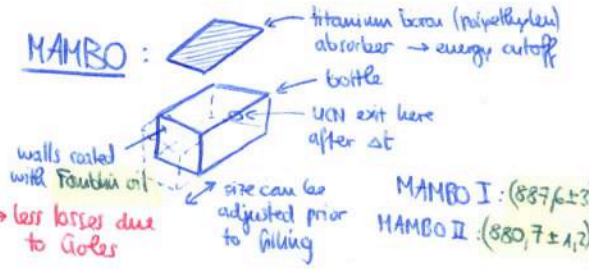 MAMBO :
titanium boron (polyethylen)
absorber → energy cutoff
bottle
UCN exit here
after Δt
walls coated
with Fomblin oil
→ less losses due
to holes
size can be
adjusted prior
to filling
MAMBO I : (887,6 ± 3
MAMBO II : (880,7 ± 1,2)